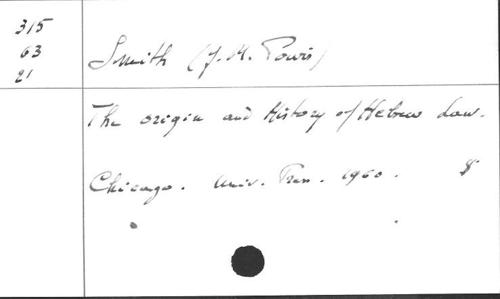 315
63
21
Smith (J. M. Powis)
The origin and history of Hebrew Law.
Chicago. Univ. Press. 1960. 8